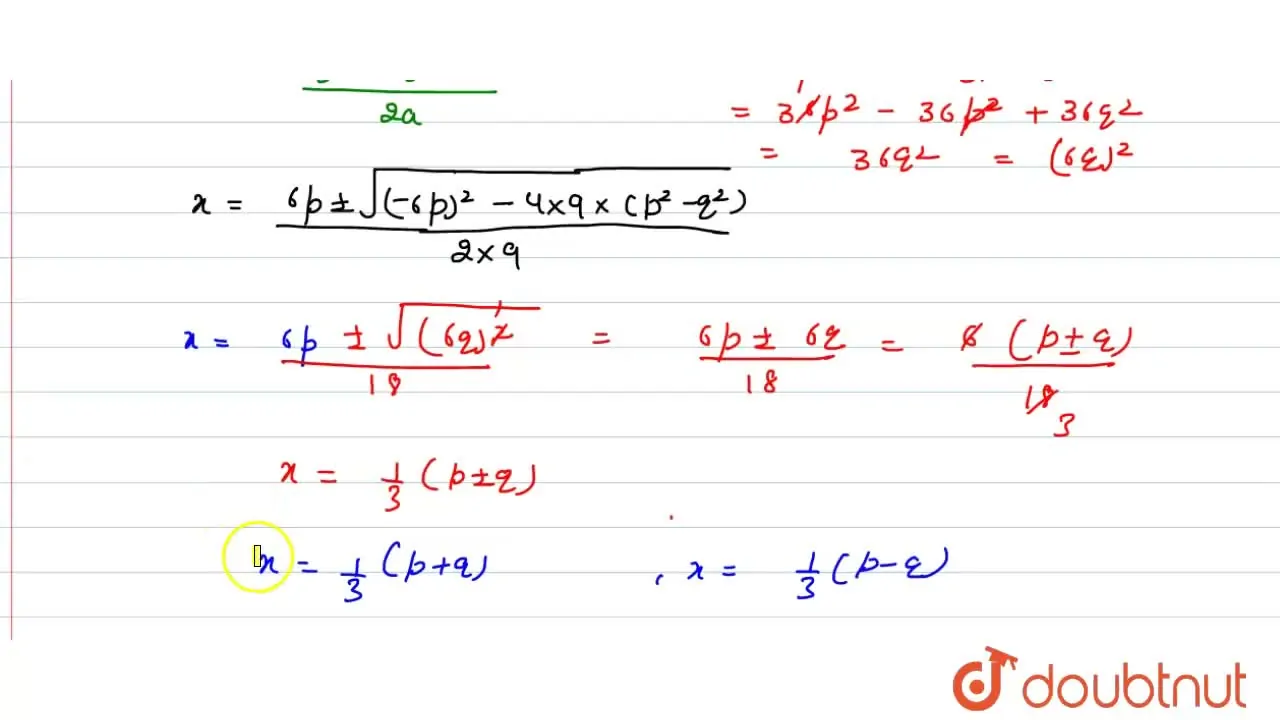 2a
= 36p² - 36p² + 36q²
= 36q² = (6q)²
x = 6p ± √(-6p)² - 4×9×(p²-q²)
2×9
x = 6p ± √(6q)² = 6p ± 6q = 6 (p±q)
18 18 18
3
x = 1/3 (p±q)
x = 1/3 (p+q) , x = 1/3 (p-q)
doubtnut